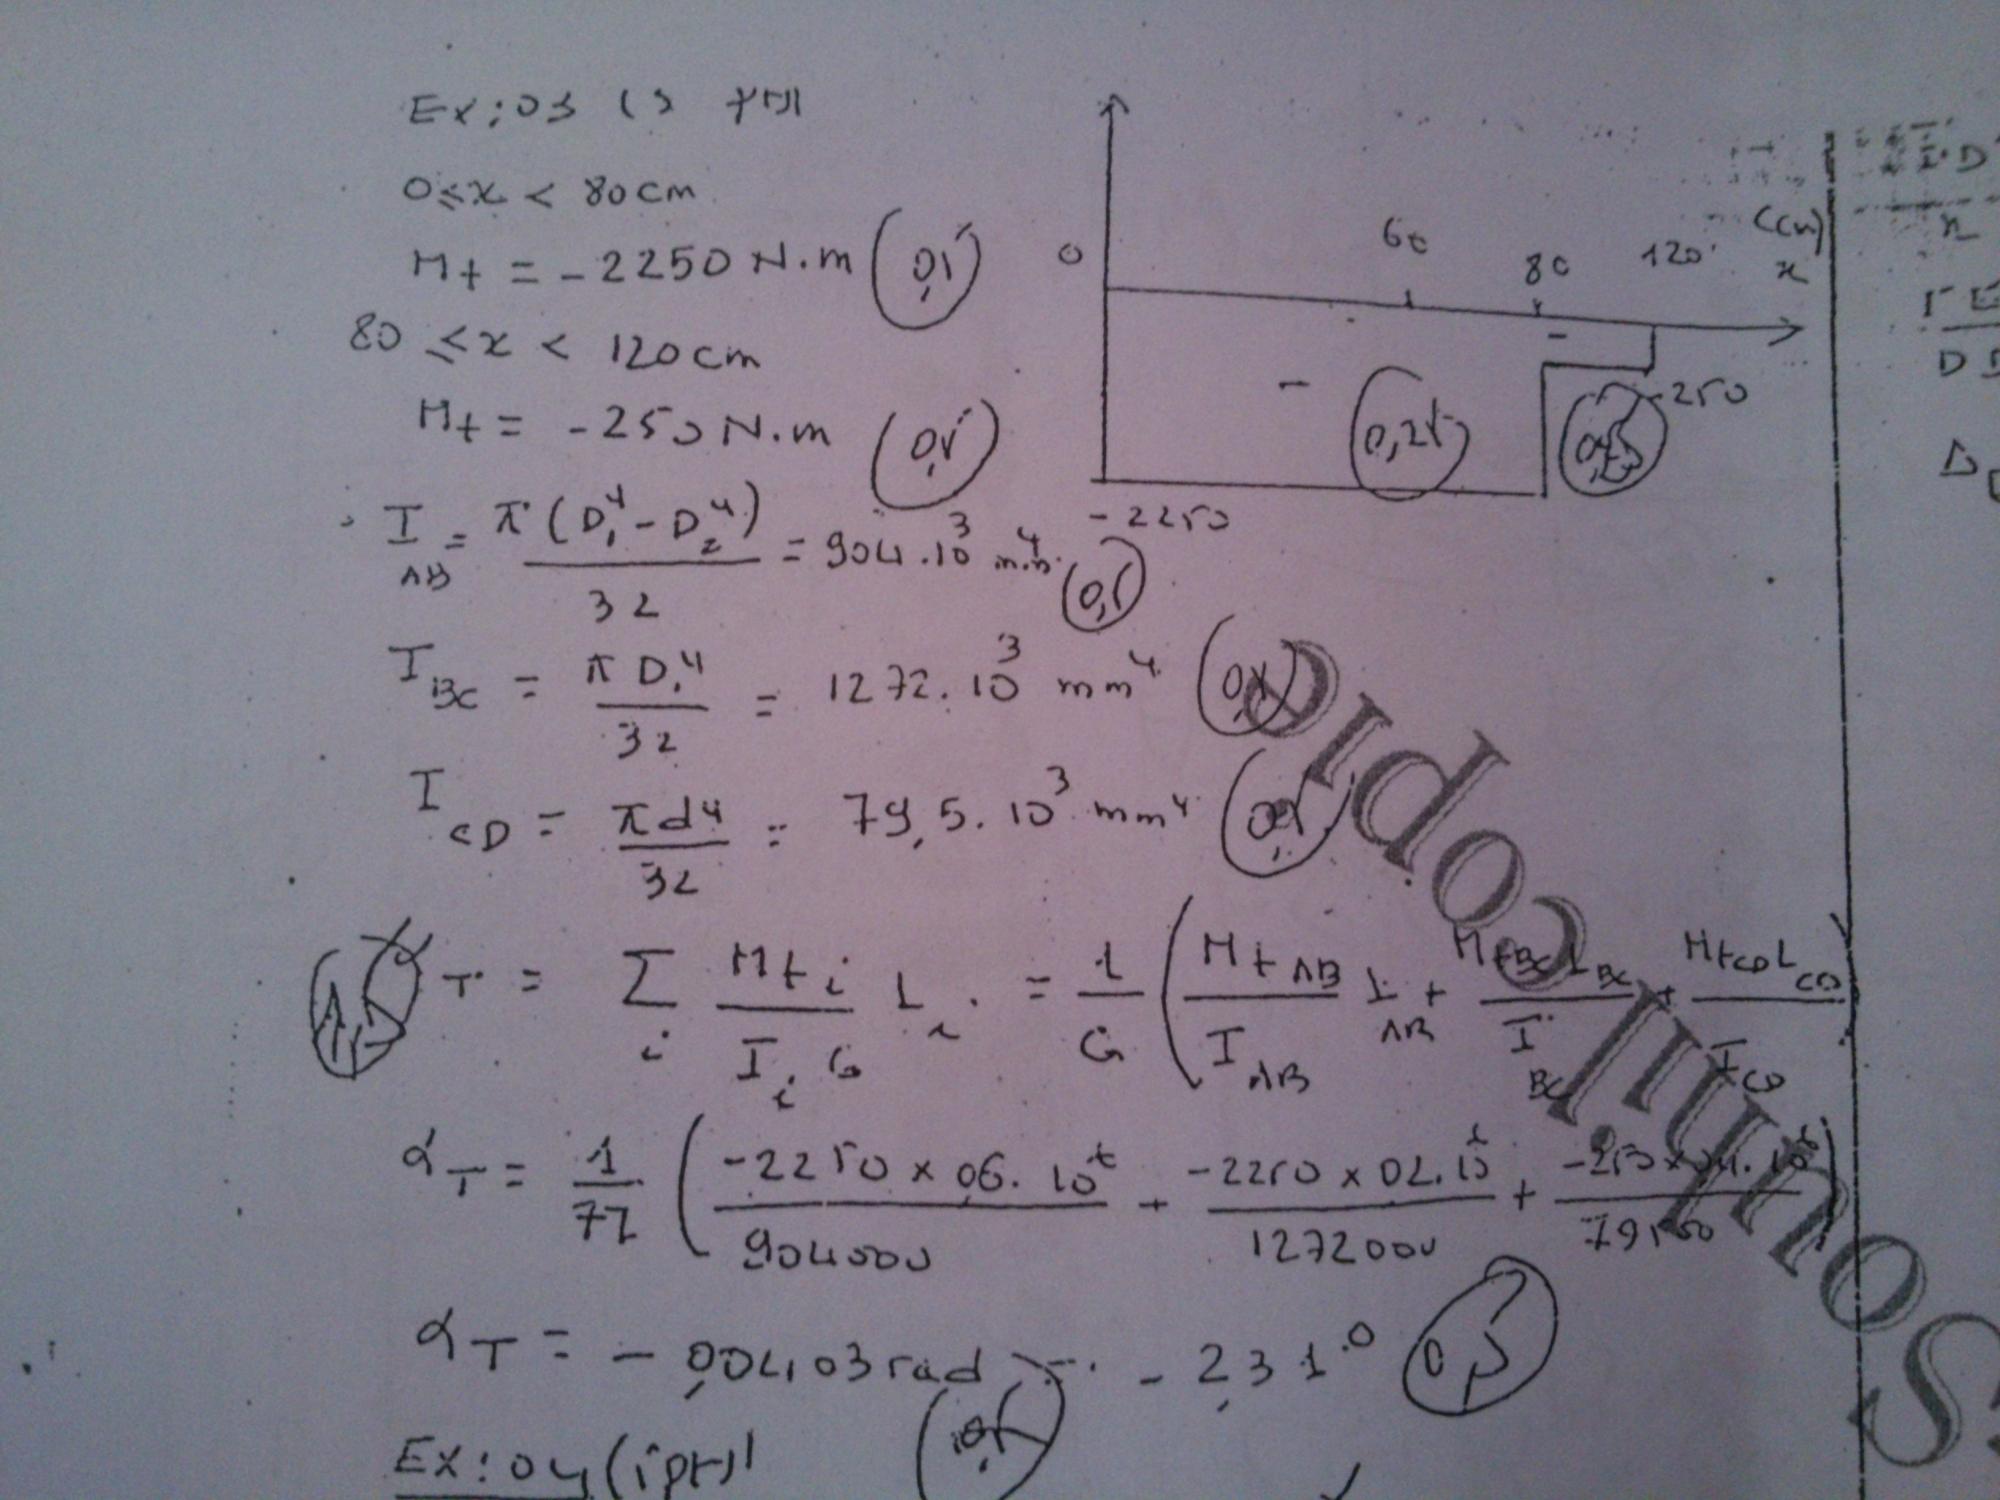 Ex: 03 (5
0 ≤ x < 80 cm
Mt = - 2250 N.m (0,5)
80 ≤ x < 120 cm
Mt = - 250 N.m (0,5)
0 60 80 120 (cm) x
- - 0,25 -250
-2250
I AB = π (D₁⁴ - D₂⁴) / 32 = 904.10³ mm⁴ (0,5)
I BC = π D₁⁴ / 32 = 1272.10³ mm⁴ (0,5)
I CD = π d⁴ / 32 = 79,5.10³ mm⁴
α T = Σ i Mt i / I i G L i = 1 / G ( Mt AB / I AB L AB + Mt BC L BC / I BC + Mt CD L CD / I CD )
α T = 1 / 77 ( -2250 x 06. 10⁶ / 904000 + -2250 x 02. 10⁶ / 1272000 + -250 x 04. 10⁶ / 79500 )
α T = - 0,0403 rad = - 2,31°
Ex: 04
Souhil Copie